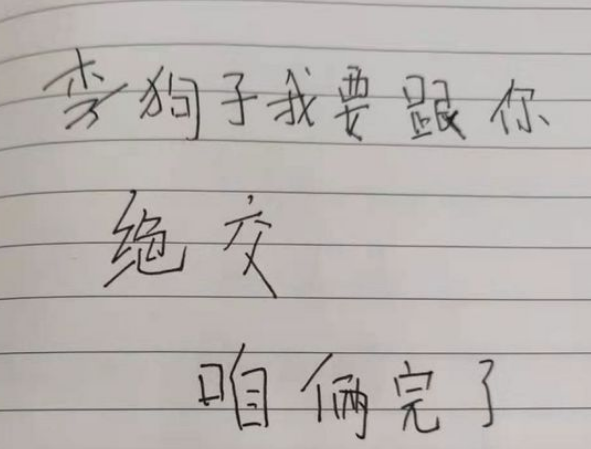 李狗子我要跟你
绝交
咱俩完了